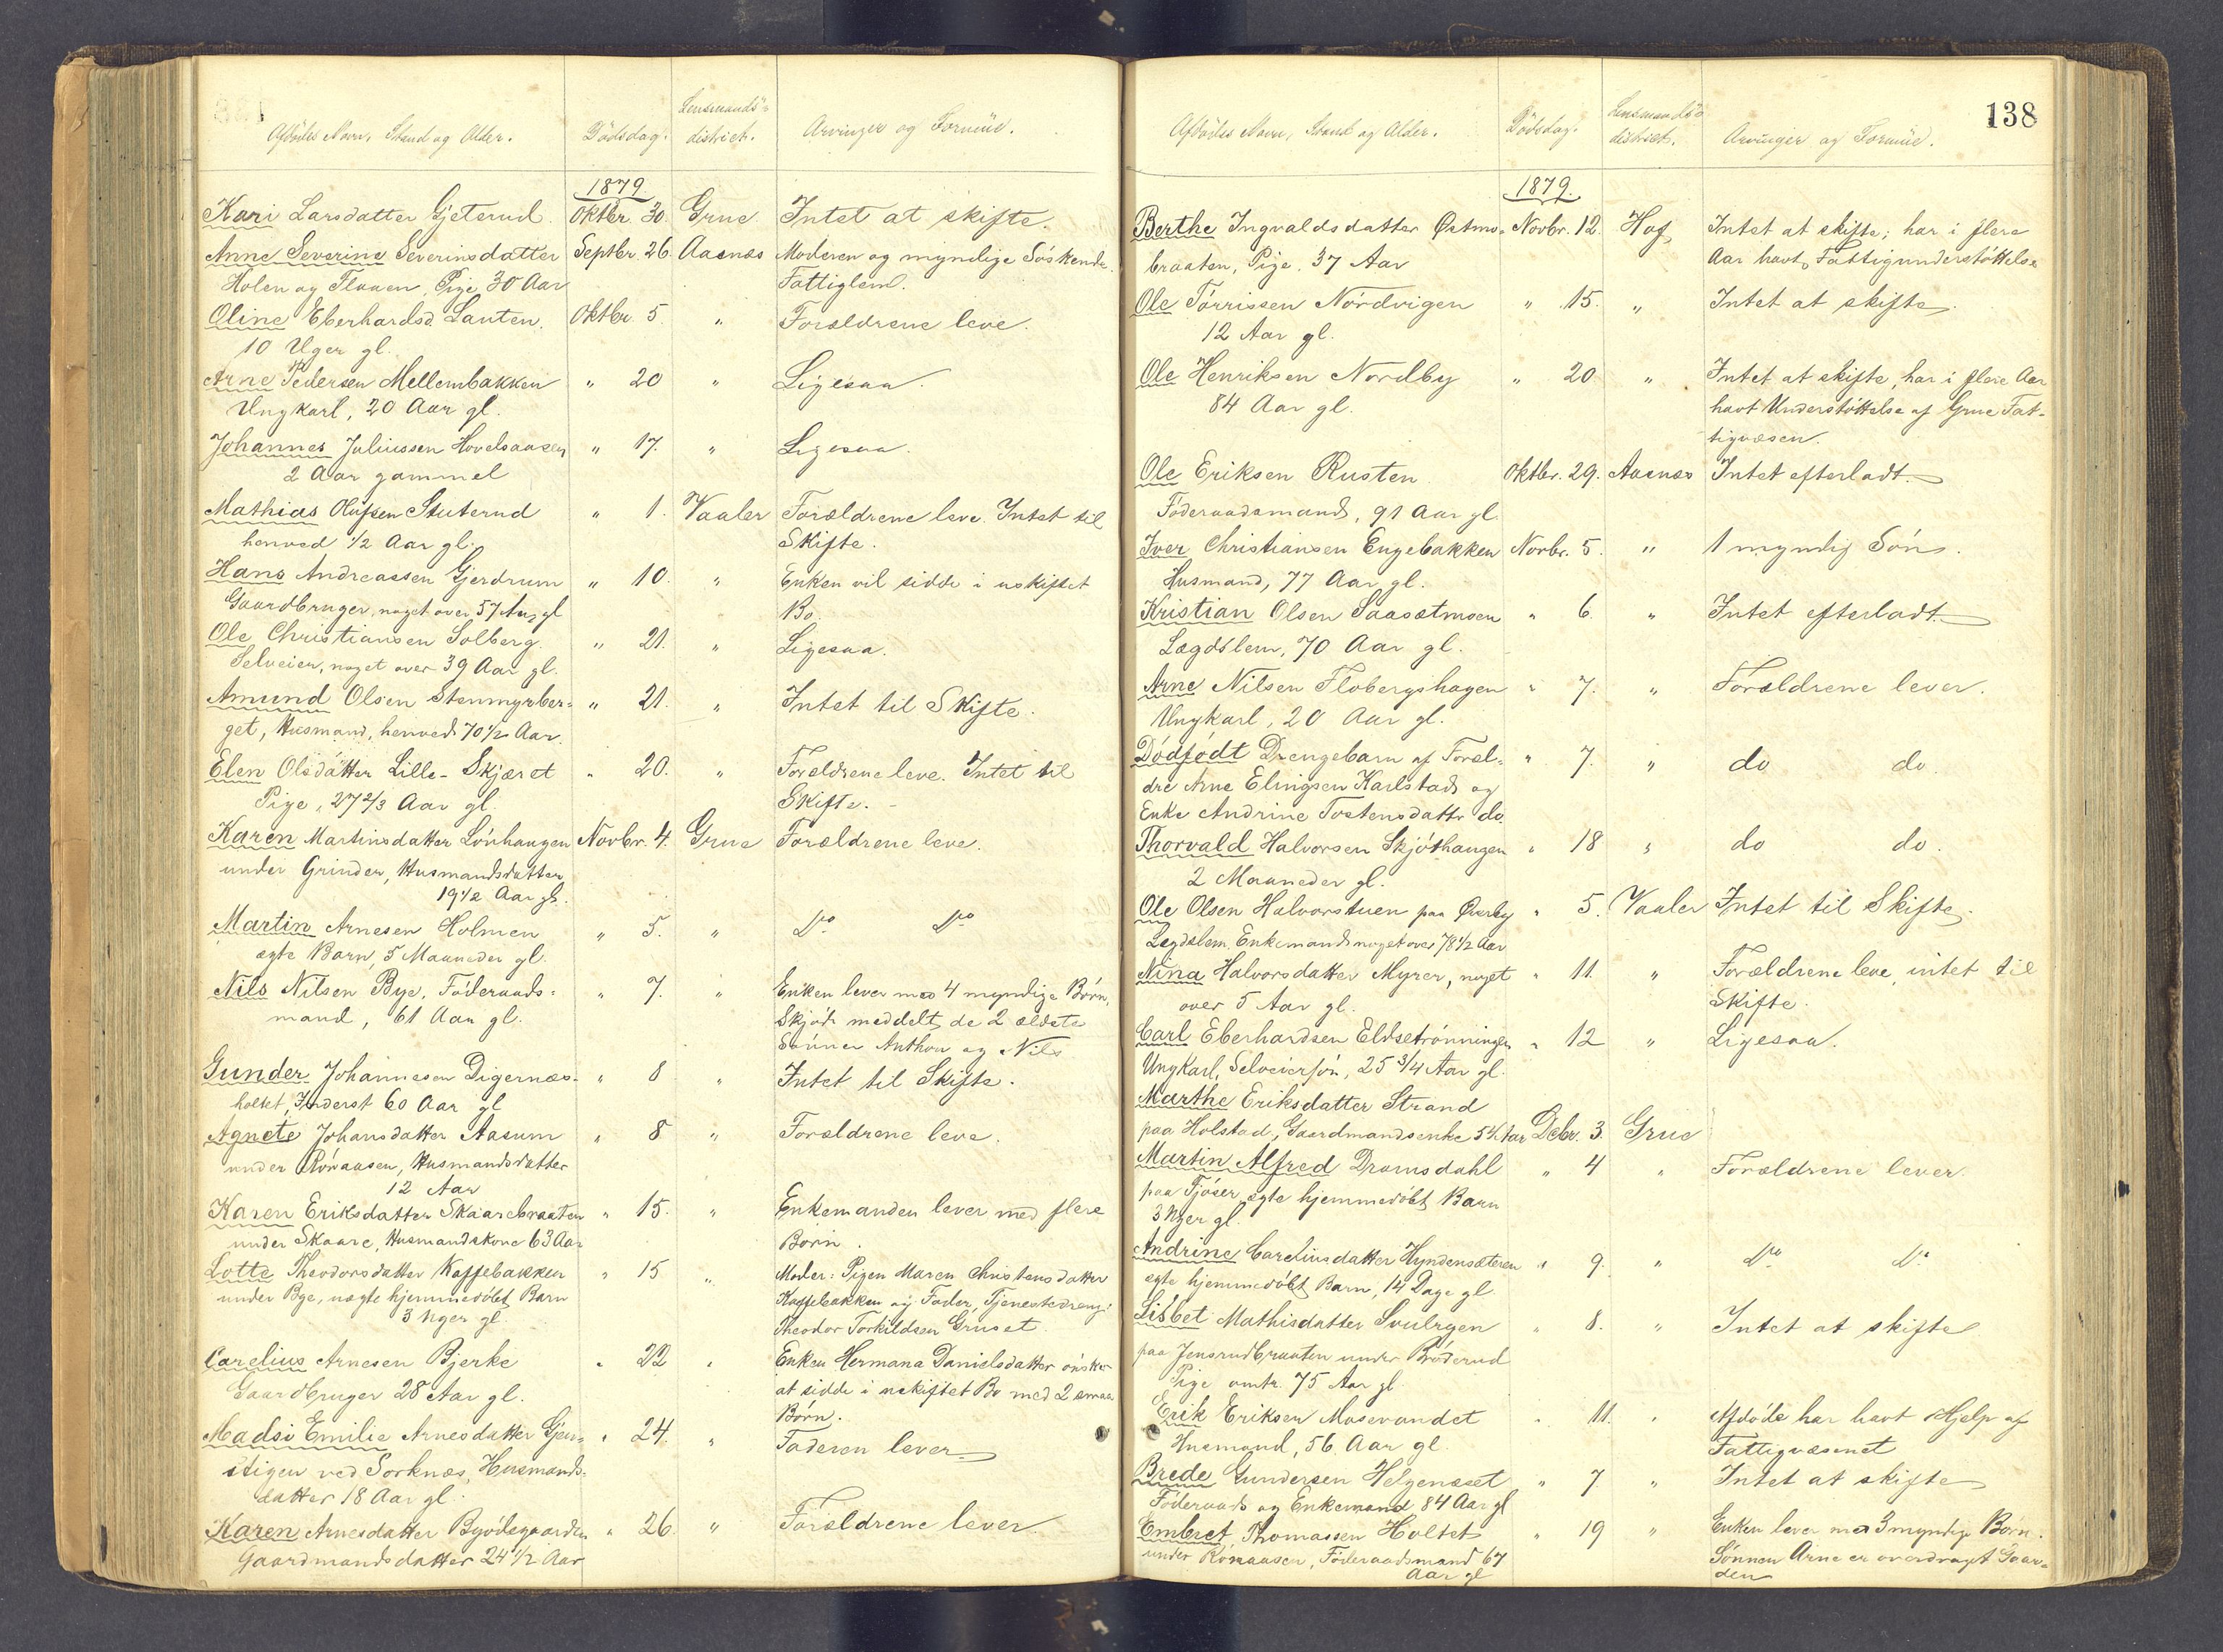 Afdödes Navn, Stand og Alder. Dödsdag. Lensmands-
district. Arvinger og Formue.
1879.
Kari Larsdatter Gjeterud. Oktbr. 30. Grue. Intet at skifte.
Anne Severine Severinsdatter Septbr. 26. Aasnæs Moderen og myndige Söskende.
Holen og Flauen, Pige 30 Aar Fattiglem.
Oline Eberhardsd. Lauten. Oktbr. 5. " Forældrene leve.
10 Uger gl.
Arne Pedersen Mellembakken " 20 " Ligesaa.
Ungkarl, 20 Aar gl.
Johannes Juliussen Hovelsaasen " 17. " Ligesaa.
2 Aar gammel
Mathias Olufsen Stuterud " 1. Vaaler Forældrene leve. Intet til
henved 1/2 Aar gl. Skifte.
Hans Andreassen Gjerdrum " 10. " Enken vil sidde i uskiftet
Gaardbruger, noget over 57 Aar gl Bo.
Ole Christiansen Solberg " 21. " Ligesaa.
Selveier, noget over 39 Aar gl.
Amund Olsen Stenmyrber- " 21. " Intet til Skifte.
get, Husmand, henved 70 1/2 Aar.
Elen Olsdatter Lille-Skjæret " 20. " Forældrene leve. Intet til
Pige, 27 2/3 Aar gl. Skifte.
Karen Martinsdatter Lönhaugen Novbr. 4. Grue Forældrene leve.
under Grinder, Husmandsdatter
19 1/2 Aar gl.
Martin Arnesen Holmen " 5. " Do Do
ægte Barn, 5 Maaneder gl.
Nils Nilsen Bye, Föderaads- " 7. " Enken lever med 4 myndige Börn,
mand, 61 Aar gl. Skjöde meddelt de 2 ældste
Sönner Anthon og Nils
Gunder Johannesen Digernæs- " 8 " Intet til Skifte.
holtet, Inderst 60 Aar gl
Agnete Johansdatter Aasum " 8 " Forældrene leve.
under Rönaasen, Husmandsdatter
12 Aar
Karen Eriksdatter Skaarebraaten " 15. " Enkemanden lever med flere
under Skaare, Husmandskone 63 Aar Börn.
Lotte Theodorsdatter Kaffebakken " 15 " Moder: Pigen Maren Christensdatter
under Bye, uægte hjemmedöbt Barn Kaffebakken og Fader, Tjenestedreng
3 Uger gl. Theodor Torkildsen Gruset.
Carelius Arnesen Bjerke " 22 " Enken Hermana Danielsdatter önsker
Gaardbruger 28 Aar gl. at sidde i uskiftet Bo med 2 smaa
Börn.
Madsi Emilie Arnesdatter Gjer- " 24. " Faderen lever
stigen ved Sorknæs, Husmands-
datter 18 Aar gl.
Karen Arnesdatter Bygdegaarden " 26. " Forældrene lever.
Gaardmandsdatter 24 1/2 Aar
138
Afdödes Navn, Stand og Alder. Dödsdag. Lensmands-
district. Arvinger og Formue.
1879.
Berthe Ingvaldsdatter Østmo- Novbr. 12. Hof, Intet at skifte; har i flere
braaten, Pige, 37 Aar Aar havt Fattigunderstöttelse
Ole Törrissen Nordvigen " 15. " Intet at skifte.
12 Aar gl.
Ole Henriksen Nordby " 20 " Intet at skifte, har i flere Aar
84 Aar gl. havt Understöttelse af Grue Fat-
tigvæsen.
Ole Eriksen Rusten Oktbr. 29. Aasnæs Intet efterladt.
Föderaadsmand, 91 Aar gl.
Iver Christiansen Engebakken Novbr. 5. " 1 myndig Sön.
Husmand, 77 Aar gl.
Kristian Olsen Saasætmoen " 6. " Intet efterladt.
Lægdslem, 70 Aar gl.
Arne Nilsen Flobergshagen " 7. " Forældrene lever.
Ungkarl, 20 Aar gl.
Dödfödt Drengebarn af Foræl- " 7. " do do.
dre Arne Elingsen Karlstad og
Enke Andrine Tostensdattr do.
Thorvald Halvorsen Skjöthaugen " 18 " do do.
2 Maaneder gl.
Ole Olsen Halvorstuen paa Øverby " 5. Vaaler Intet til Skifte.
Lægdslem, Enkemand noget over 78 1/2 Aar
Nina Halvorsdatter Myrer, noget " 11. " Forældrene leve, intet til
over 5 Aar gl. Skifte.
Carl Eberhardsen Eldsetrønningen " 12 " Ligesaa.
Ungkarl, Selveiersön, 25 3/4 Aar gl.
Marthe Eriksdatter Strand
paa Holstad, Gaardmandsenke 54 Aar Debr. 3. Grue
Martin Alfred Dramsdahl " 4 " Forældrene lever
paa Tjöser, ægte hjemmedöbt Barn
3 Uger gl.
Andrine Careliusdatter Hyndensæteren " 9. " Do Do
ægte hjemmedöbt Barn, 14 Dage gl.
Lisbet Mathisdatter Svulryen " 8. " Intet at skifte
paa Jensrudbraaten under Bröderud
Pige omtr. 75 Aar gl.
Erik Eriksen Mosevandet " 11. " Afdöde har havt Hjelp af
Husmand, 56 Aar gl. Fattigvæsenet
Brede Gundersen Helgenæset " 7. " Intet at skifte
Föderaads og Enkemand 84 Aar gl
Embret Thomassen Holtet " 19 " Enken lever med 3 myndige Börn.
under Rönaasen, Föderaadsmand 67 Sönnen Arne er overdraget Gaar-
Aar gl den